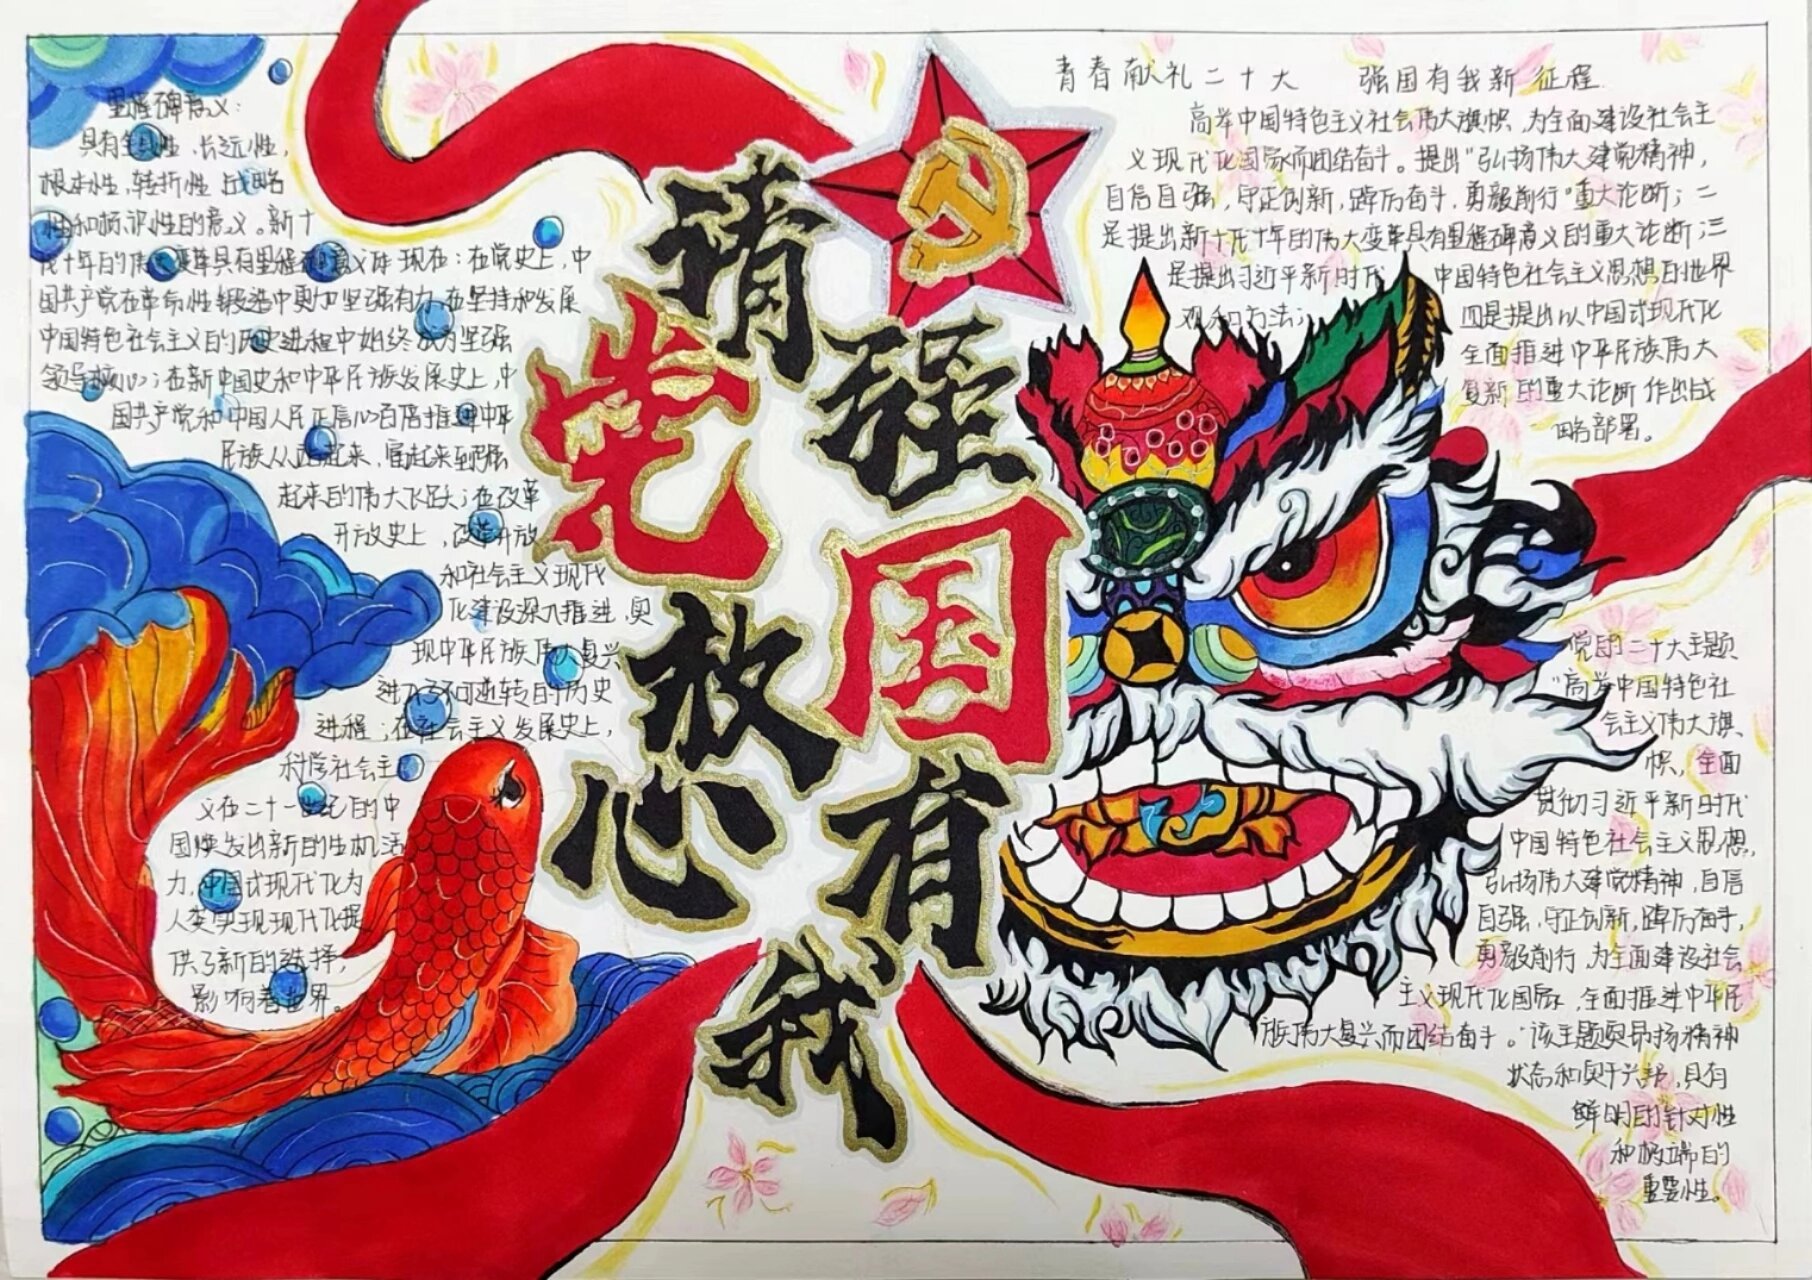 请党放心
强国有我
里程碑意义：
具有全局性、长远性，
根本性，转折性 战略
性和标识性的意义。新十
代十年的伟大变革具有里程碑意义体现在：在党史上，中
国共产党在革命性锻造中更加坚强有力 在坚持和发展
中国特色社会主义的历史进程中始终成为坚强
领导核心；在新中国史和中华民族发展史上，中
国共产党和中国人民正信心百倍推进中华
民族从站起来、富起来到强
起来的伟大飞跃；在改革
开放史上，改革开放
和社会主义现代
化建设深入推进，实
现中华民族伟大复兴
进入了不可逆转的历史
进程；在社会主义发展史上，
科学社会主
义在二十一世纪的中
国焕发出新的生机活
力，中国式现代化为
人类实现现代化提
供了新的选择，
影响着世界。
青春献礼二十大 强国有我新征程
高举中国特色主义社会伟大旗帜，为全面建设社会主
义现代化国家而团结奋斗。提出“弘扬伟大建党精神，
自信自强，守正创新，踔厉奋斗，勇毅前行”重大论断；二
是提出新十代十年的伟大变革具有里程碑意义的重大论断；三
是提出习近平新时代 中国特色社会主义思想的世界
观和方法； 四是提出以中国式现代化
全面推进中华民族伟大
复新的重大论断 作出战
略部署。
党的二十大主题
“高举中国特色社
会主义伟大旗
帜，全面
贯彻习近平新时代
中国特色社会主义思想，
弘扬伟大建党精神，自信
自强，守正创新，踔厉奋斗，
勇毅前行，为全面建设社会
主义现代化国家，全面推进中华民
族伟大复兴而团结奋斗。”该主题
状态和实干兴邦，具有
鲜明的针对性
和极端的
重要性。